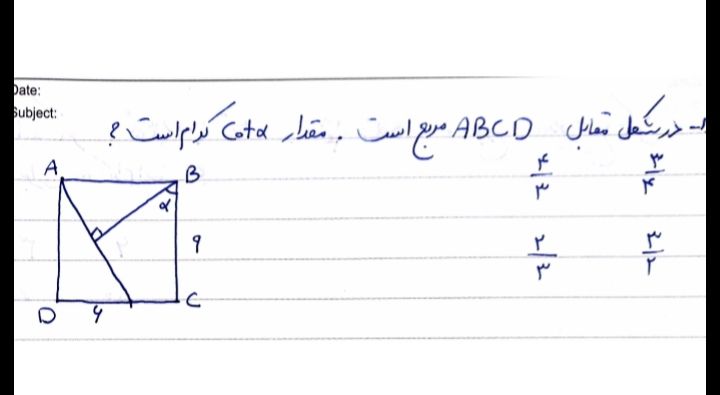 Date:
Subject:
۱- در شکل مقابل ABCD مربع است . مقدار Cotα کدام است ؟
۳/۴ ۴/۳
۳/۲ ۲/۳
A B
α
۹
D ۶ C